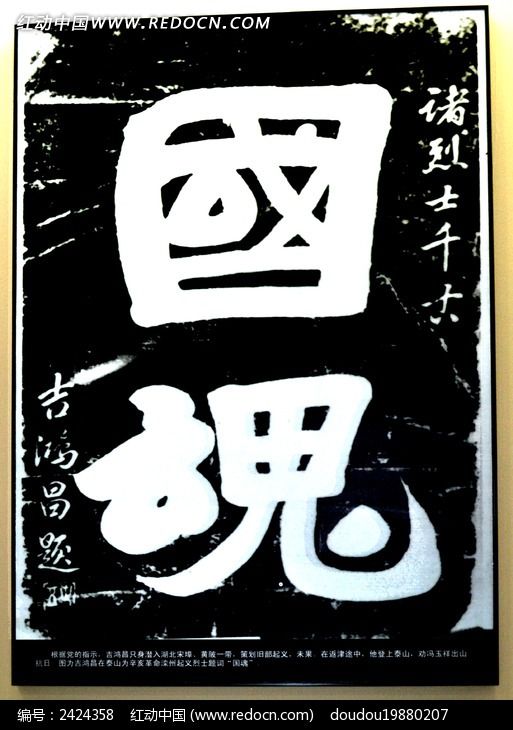 红动中国 WWW.REDOCN.COM
红动中国(WWW.REDOCN.COM)
诸烈士千古
國魂
吉鴻昌题
根据党的指示，吉鸿昌只身潜入湖北宋埠、黄陂一带，策划旧部起义，未果。在返津途中，他登上泰山，劝冯玉祥出山
抗日。图为吉鸿昌在泰山为辛亥革命滦州起义烈士题词“国魂”
编号：2424358 红动中国 (www.redocn.com) doudou19880207